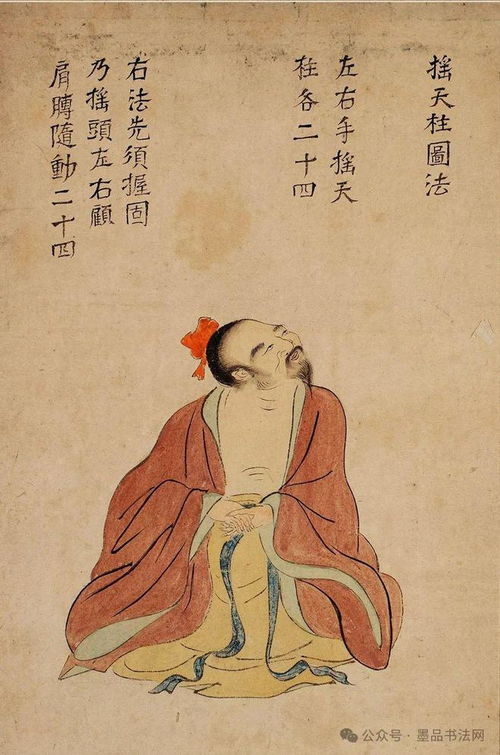 搖天柱圖法
左右手搖天
柱各二十四
右法先須握固
乃搖頭左右顧
肩膊隨動二十四
公众号·墨品书法网